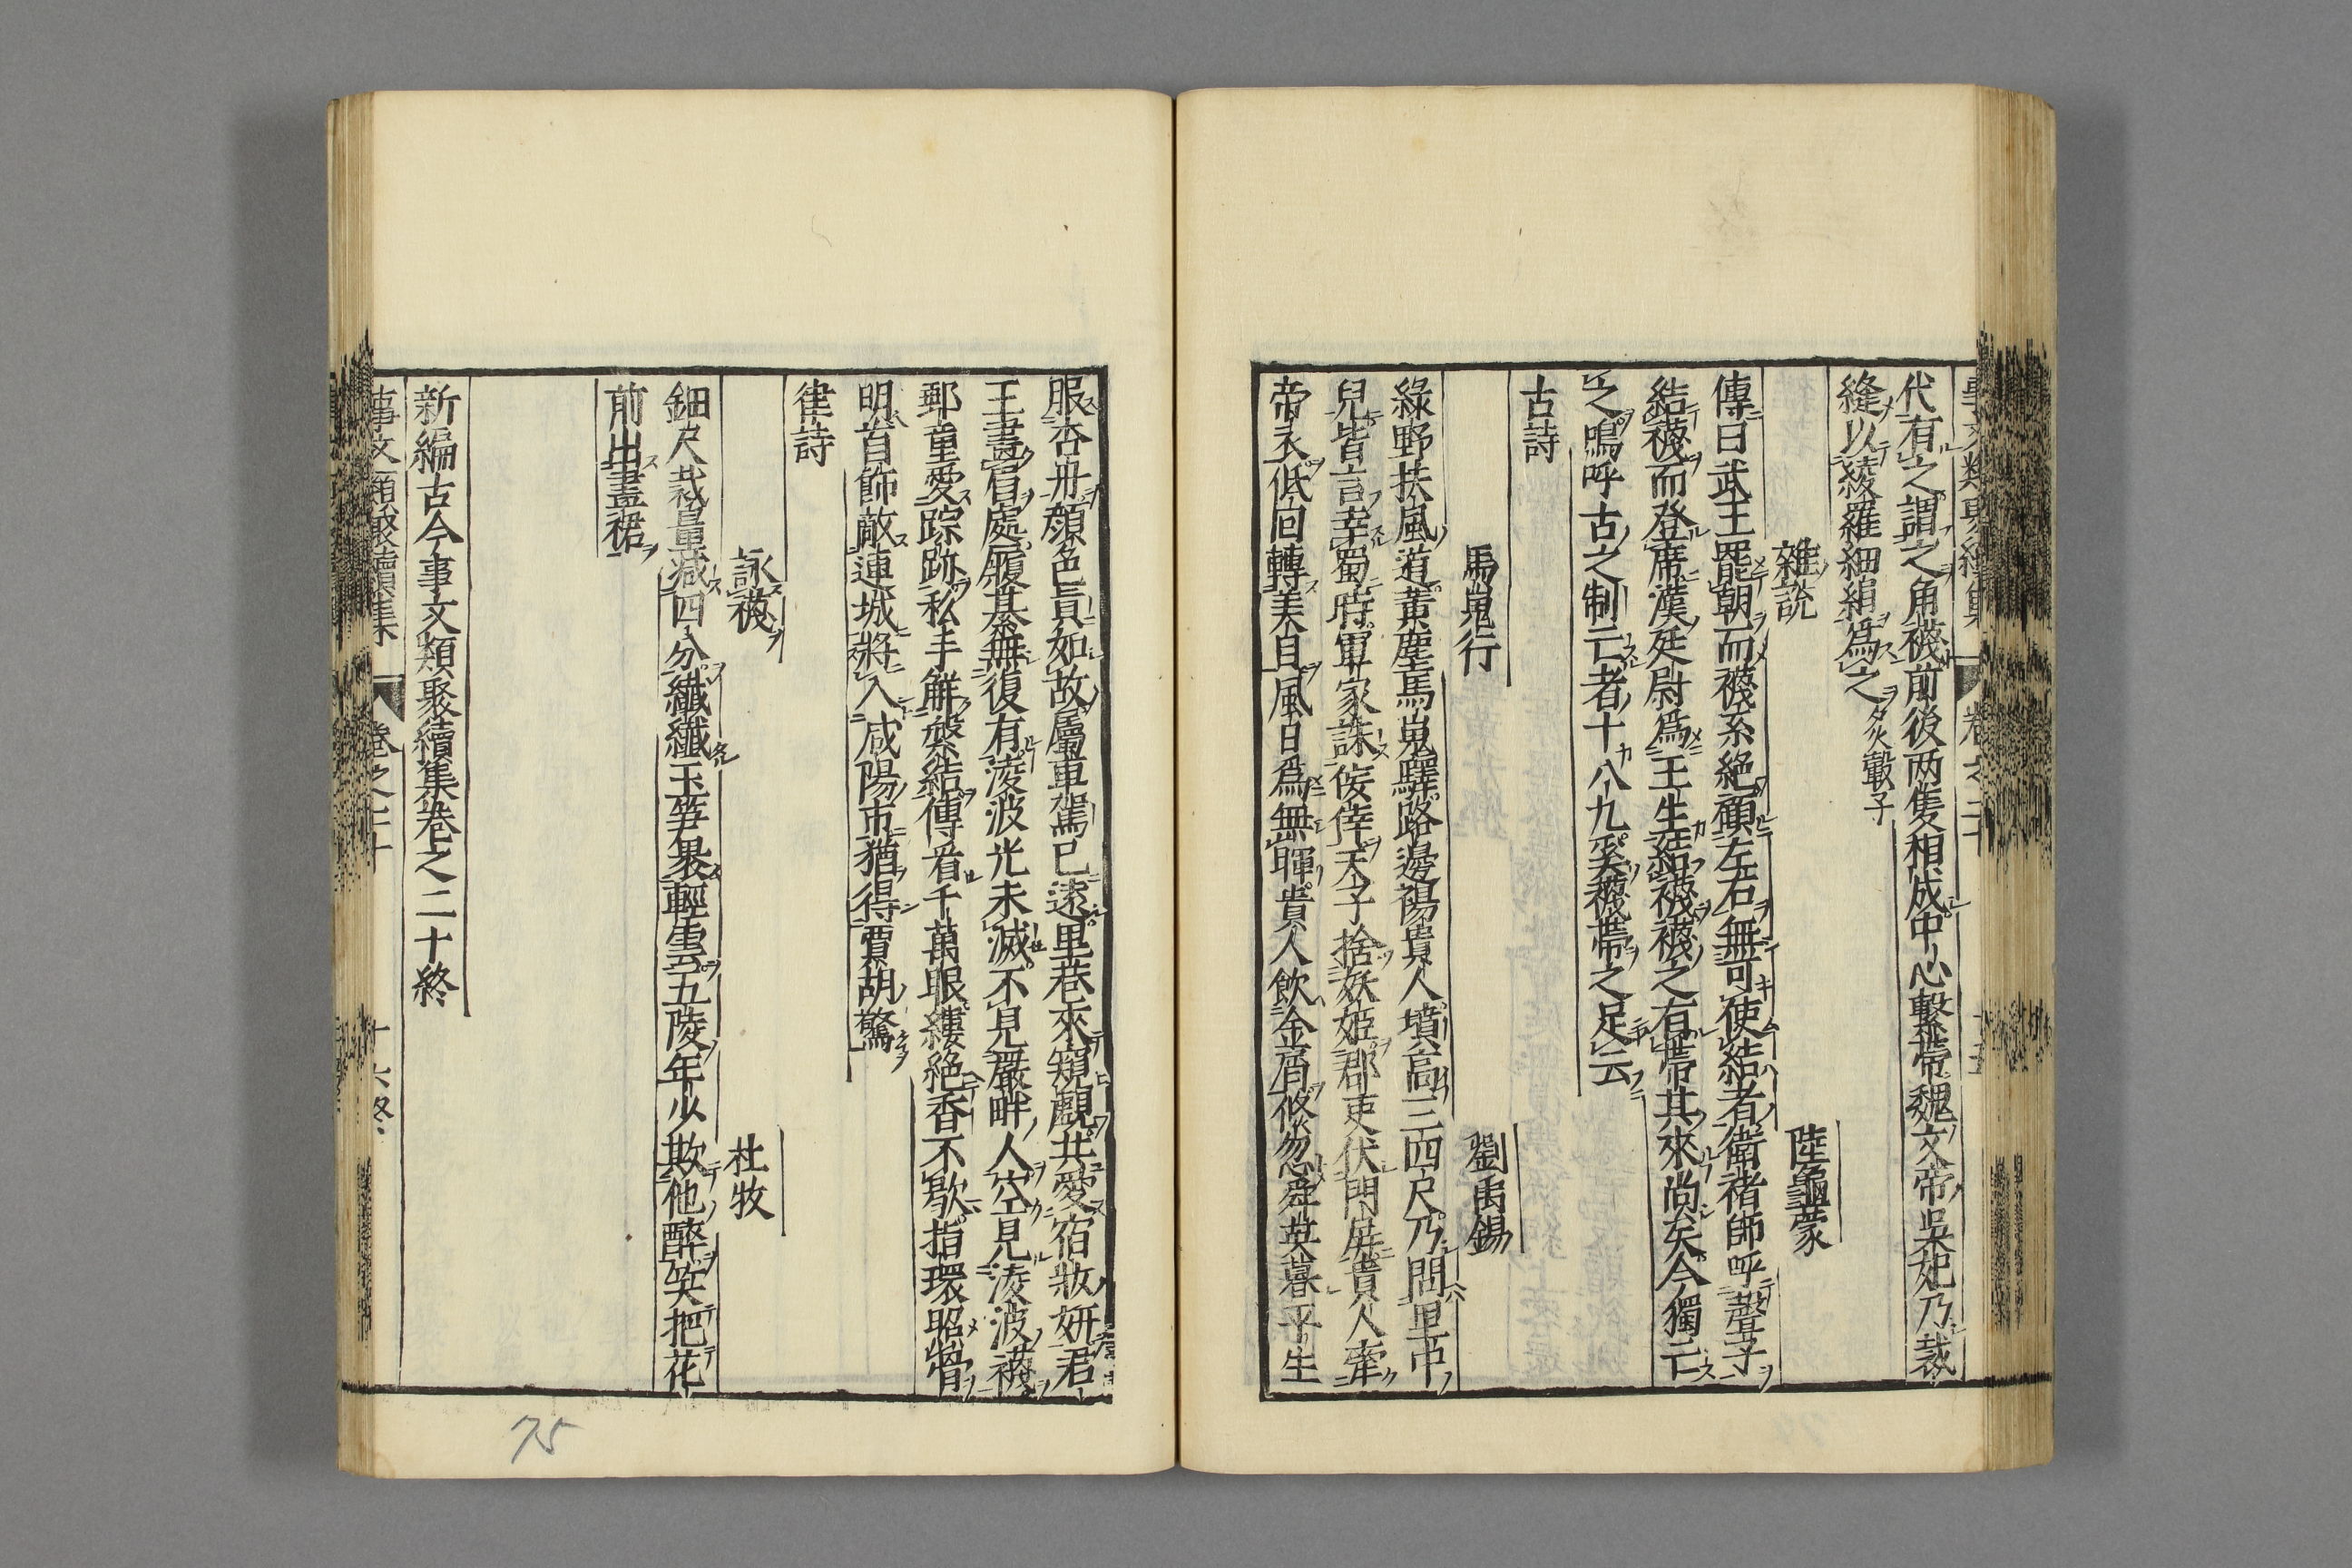 代有之謂之角襪前後两隻相成中心繫帶魏文帝吳妃乃裁
縫以綾羅細絹爲之炙轂子
雜説
陸龜蒙
傳曰武王罷朝而襪系絶顧左右無可使結者衛褚師呼聲子
結襪而登席漢廷尉爲王生結襪襪之有帶其來尚矣今獨亡
之嗚呼古之制亡者十八九奚襪帶之足云
古詩
馬嵬行
劉禹錫
綠野扶風道黃塵馬嵬驛路邊楊貴人墳高三四尺乃問里中
兒皆言幸蜀時軍家誅佞倖天子捨妖姬郡吏伏門屏貴人牽
帝衣低回轉美目風日爲無暉貴人飲金屑倏忽舜英暮平生
服杏丹顔色眞如故屬車駕已遠里巷來窺覷共愛宿妝妍君
王畫眉處履綦無復有淩波光未滅不見巖畔人空見淩波襪
郵童愛踪跡私手解鞶結傳看千萬眼縷絶香不歇指環照骨
明首飾敵連城將入咸陽市猶得賈胡驚
律詩
詠襪
杜牧
鈿尺裁量減四分纖纖玉笋裹輕雲五陵年少欺他醉笑把花
前出畫裙
新編古今事文類聚續集卷之二十終
事文類聚續集
卷之二十
十六終
75